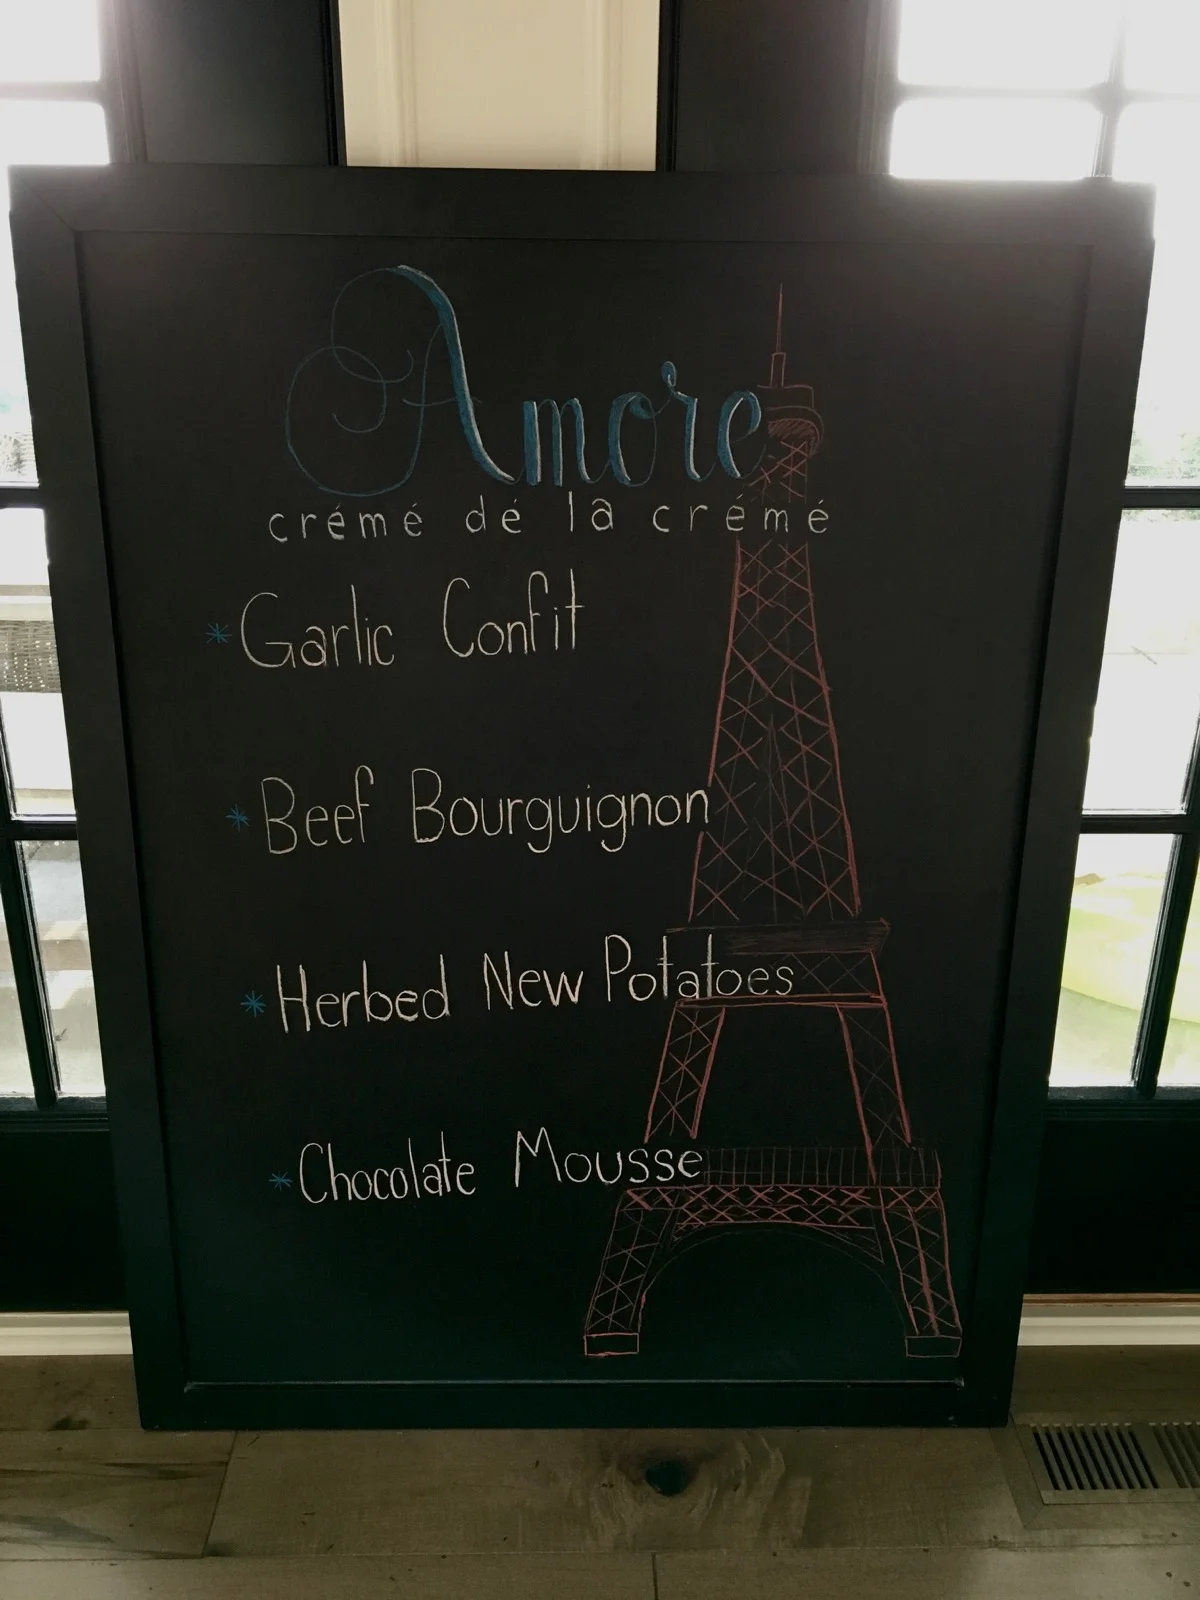 Amore
crémé dé la crémé
* Garlic Confit
* Beef Bourguignon
* Herbed New Potatoes
* Chocolate Mousse